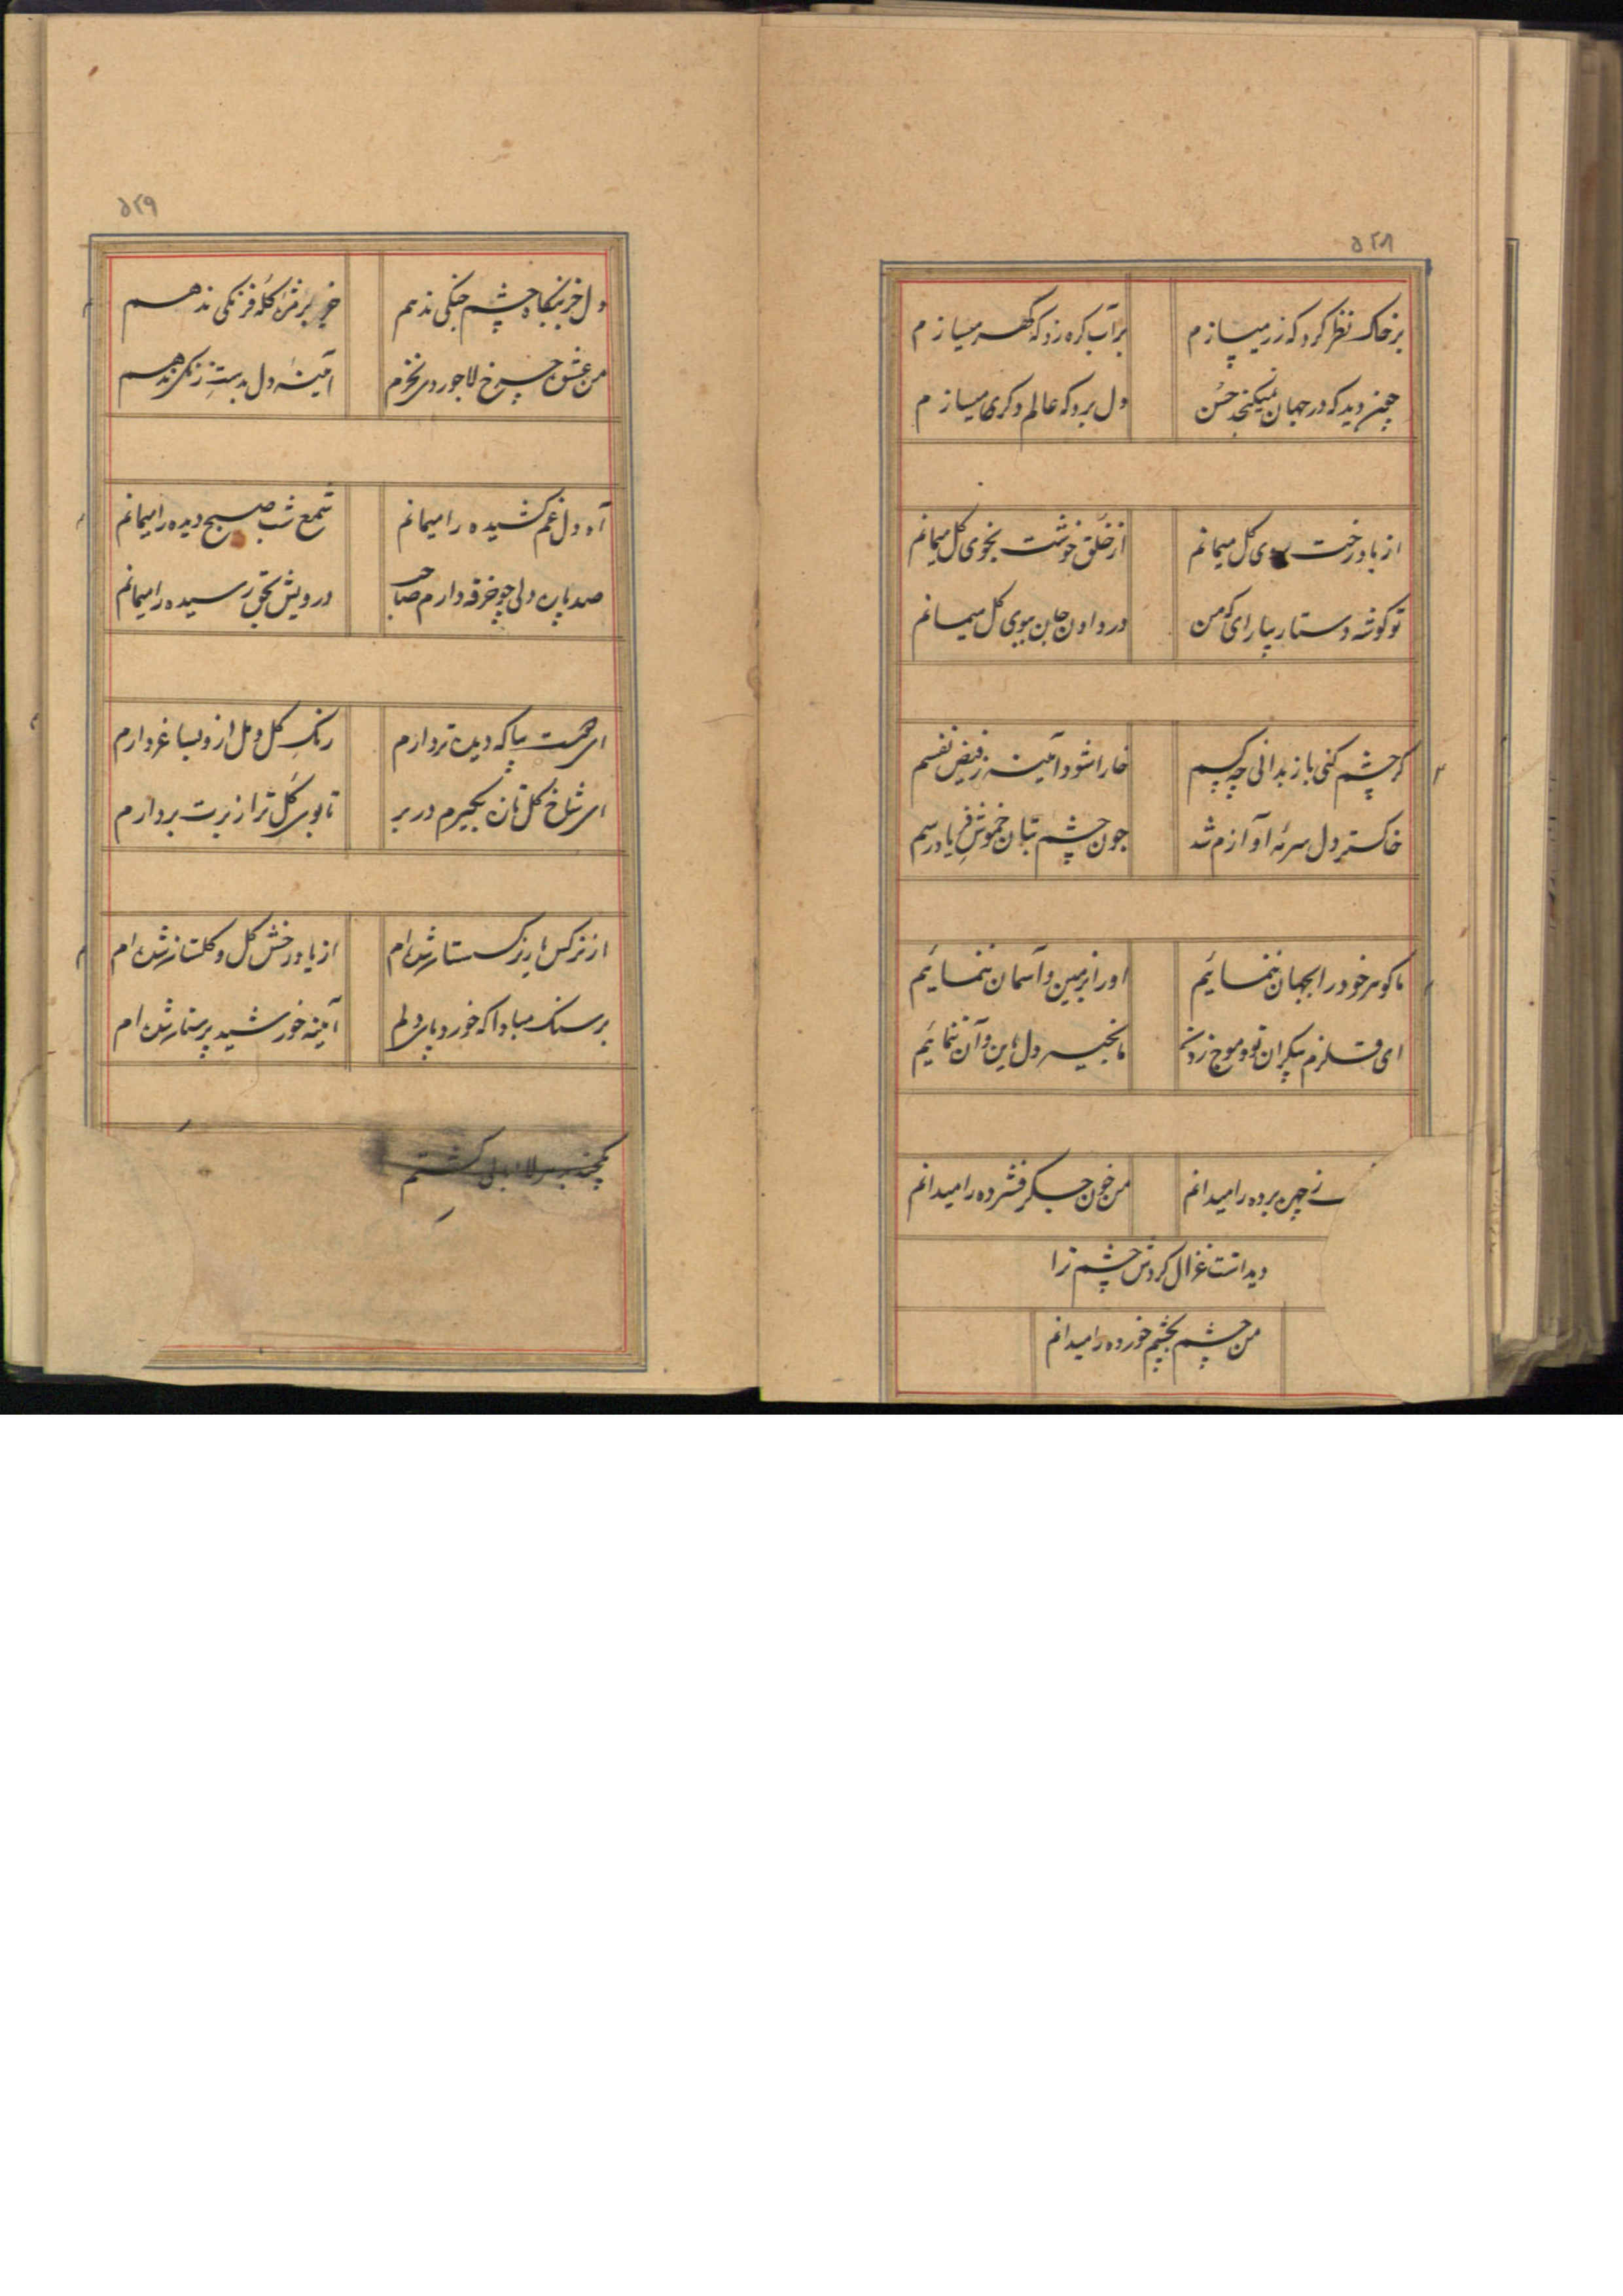 ۵۲۸
بر خاک نظر کرد که زر میسازم
بر آب گره زد که گهر میسازم
چون دید که در جهان نمیگنجد حسن
دل برد که عالم دگر میسازم
از یاد رخت بوی گل میمانم
از خلق خوشت بخوی گل میمانم
تو گوشه دستار بیارای که من
در دادن جان ببوی گل میمانم
گر چشم کنی باز بدانی چه کسم
خارا شود آئینه ز فیض نفسم
خاکستر دل سرمه آوازم شد
چون چشم بتان خموش فریادرسم
ما گوهر خود را بجهان ننمائیم
او را بزمین و آسمان ننمائیم
ای قلزم بیکران تو و موج زدنت
ما بخیه دل باین و آن ننمائیم
ز چهره برده را میدانم
من خون جگر فشرده را میدانم
دیدانست غزال گردش چشم ترا
من چشم بچشم خورده را میدانم
۵۲۹
دل جز بنگاه چشم جنگی ندهم
فرنگی ندهم
من عشق بچرخ لاجوردی نخرم
آئینه دل بدست زنگی ندهم
آه دل غم کشیده را میمانم
شمع شب صبح دیده را میمانم
صد پاره دلی چو خرقه دارم صاحب
درویش بحق رسیده را میمانم
ای مست بیا که دیده تر دارم
رنگ گل و مل ازو بساغر دارم
ای شاخ گل تازه بگیرم در بر
تا بوی گل ترا ز برت بردارم
از نرگس یار نرگسستان شده ام
از یاد رخش گل و گلستان شده ام
بر سنگ مبادا که خورد پای دلم
آئینه خورشید پرستان شده ام
یکچند گشتم